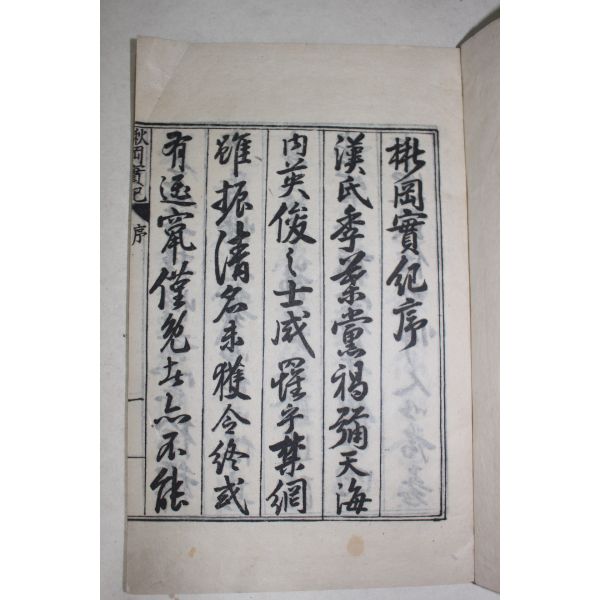 楸岡實紀序
漢氏季葉黨禍彌天海
內英俊之士咸罹乎禁網
雖振清名未獲令終或
有逃竄僅免者亦不能
楸岡實紀 序 一